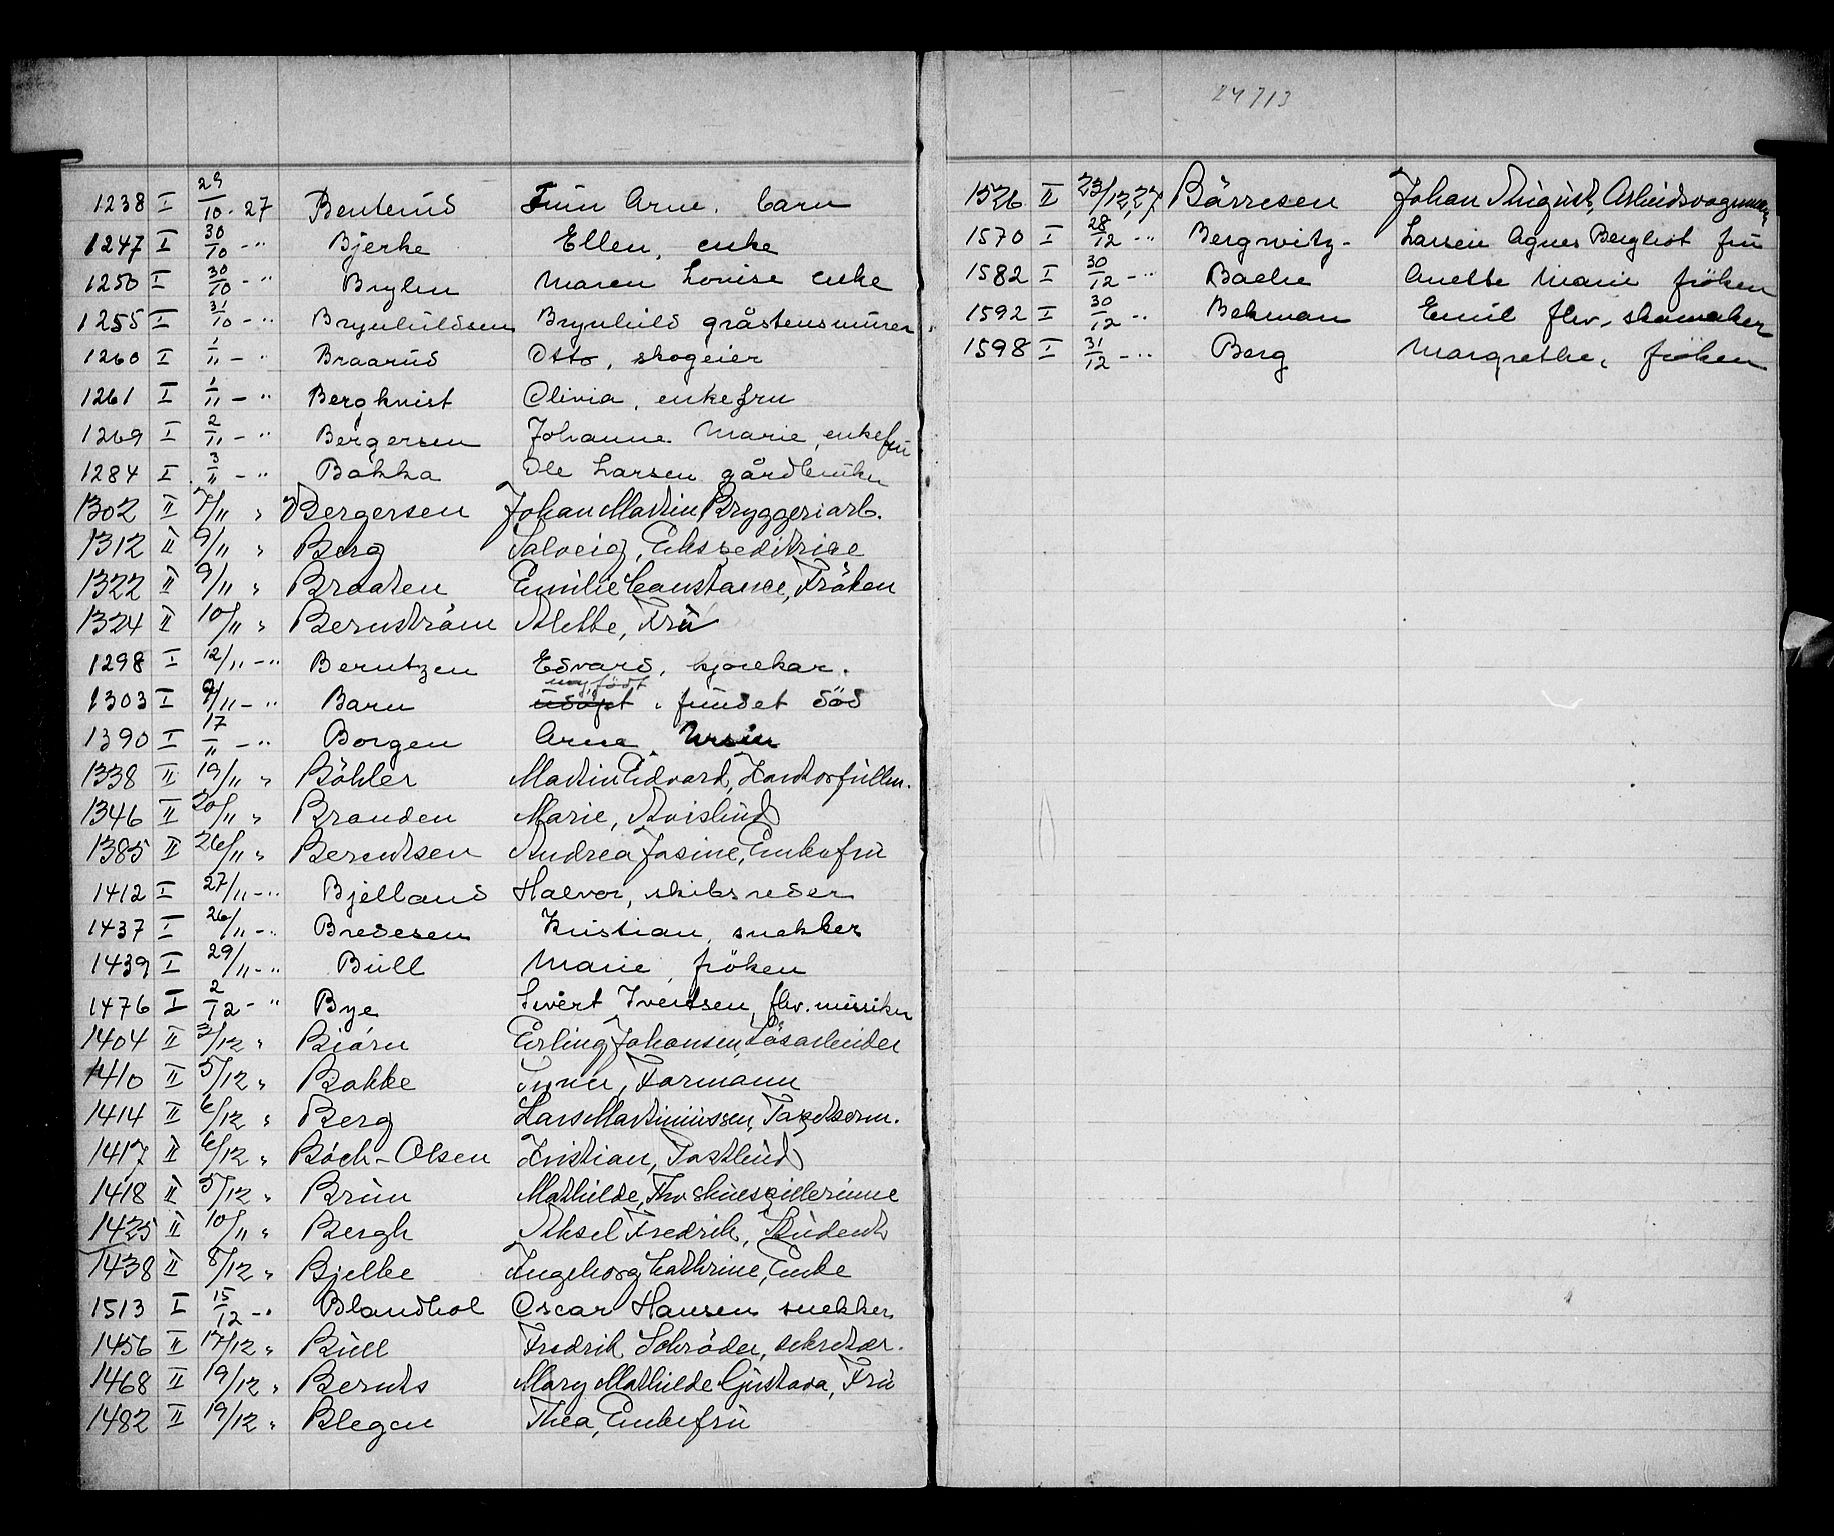 1238 I 29/10-27 Benterud Finn Arne. barn
1247 I 30/10 -"- Bjerke Ellen, enke
1250 I 30/10 -"- Brylin Maren Louise enke
1255 I 31/10 -"- Brynhildsen Brynhild gråstensmurer
1260 I 1/11 -"- Braarud Otto, skogeier
1261 I 1/11 -"- Bergkvist Olivia, enkefru
1269 I 2/11 -"- Bergersen Johanne Marie, enkefru
1284 I 3/11 -"- Bakka Ole Larsen gårdbruker
1302 II 7/11 " Bergersen Johan Martin Bryggeriarb.
1312 II 9/11 " Berg Solveig, Ekspeditrise
1322 II 9/11 " Braaten Emilie Constance, Frøken
1324 II 10/11 " Bernström Alette, Fru
1298 I 12/11 -"- Berntzen Edvard, kjørekar.
1303 I 9/11 -"- Barn nyfødt udøpt, fundet død
1390 I 17/11 -"- Borgen Arne
1338 II 19/11 " Böhler Martin Edvard, Kontorfullm.
1346 II 20/11 " Branden Marie, Avisbud
1385 II 26/11 " Berentsen Andrea Josine, Enkefru
1412 I 27/11 -"- Bjelland Halvor, skibsreder
1437 I 26/11 -"- Bredesen Kristian, snekker
1439 I 29/11 -"- Bull Marie, frøken
1476 I 2/12 -"- Bye Sivert Iversen, fhv. musiker
1404 II 3/12 " Bjørn Erling Johansen, Løsarbeider
1410 II 5/12 " Bakke Formann
1414 II 6/12 " Berg Lars Martiniussen, Tapetserm.
1417 II 6/12 " Bóch-Olsen Kristian, Postbud
1418 II 5/12 " Brun Mathilde, Fhv skuespillerinne
1425 II 10/11 " Bergh Aksel Fredrik, Student
1438 II 8/12 " Bjelke Ingeborg Cathrine, Enke
1513 I 15/12 -"- Blandhol Oscar Hansen snekker
1456 II 17/12 " Bull Fredrik Schrøder, sekretær.
1468 II 19/12 " Bernts Mary Mathilde Gustava, Fru
1482 II 19/12 " Blegen Thea, Enkefru
24713
1526 II 23/12,27 Börresen Johan August, Arbeidsvognmann
1570 I 28/12 -"- Bergwitz- Larsen Agnes Bergliot fru
1582 I 30/12 -"- Bache Anette Marie frøken
1592 I 30/12 -"- Bekman Emil fhv. skomaker
1598 I 31/12 -"- Berg Margrethe, frøken